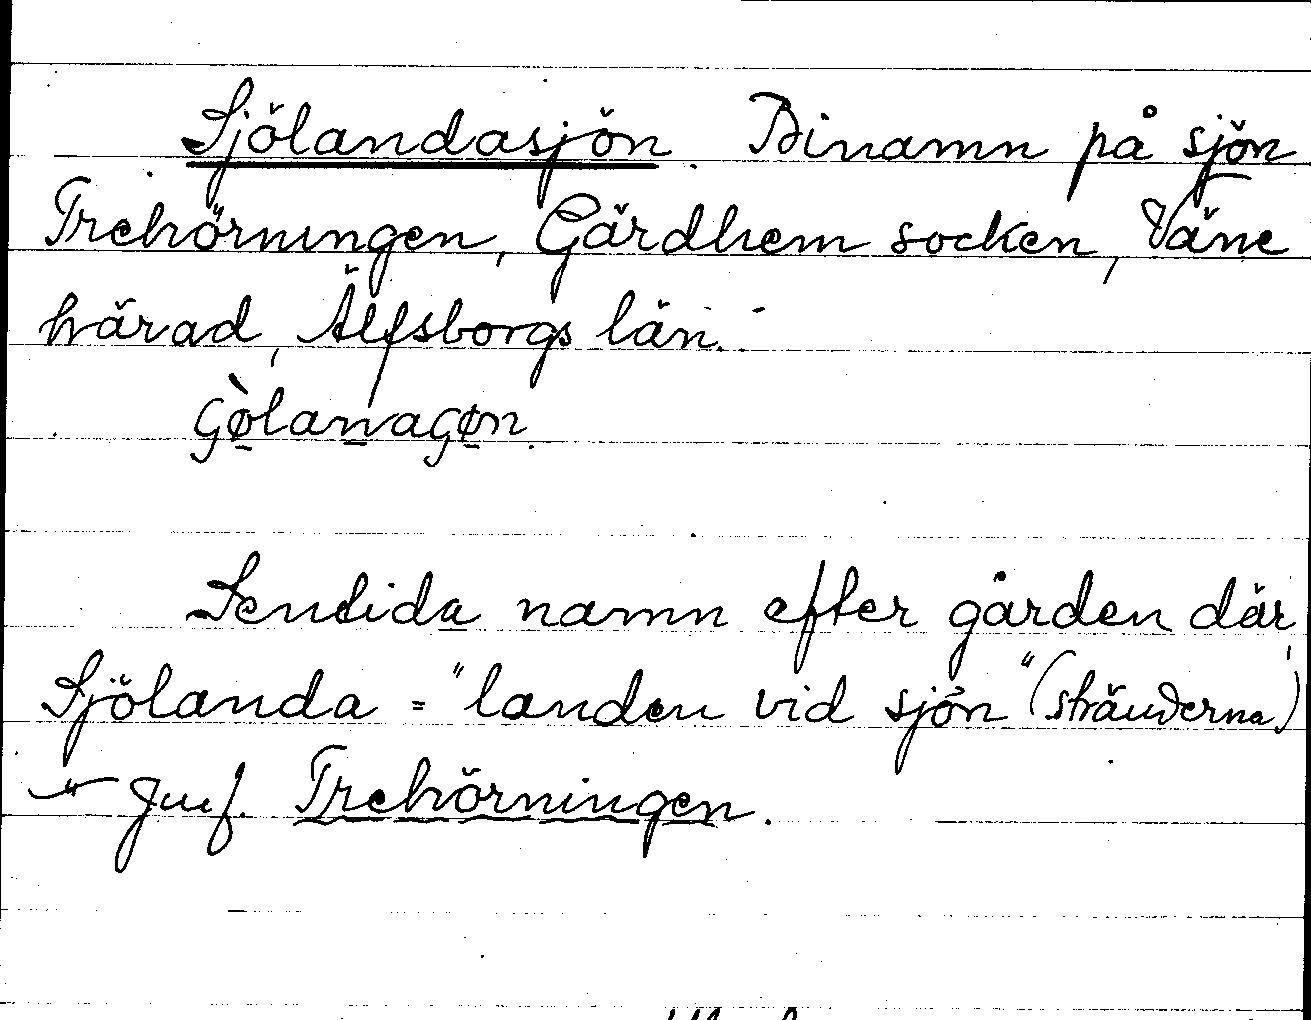 Sjölandasjön. Binamn på sjön
Trehörningen, Gärdhem socken, Väne
härad, Älfsborgs län.
Sentida namn efter gården där,
Sjölanda = "landen vid sjön" (stränderna)
Jmf. Trehörningen.